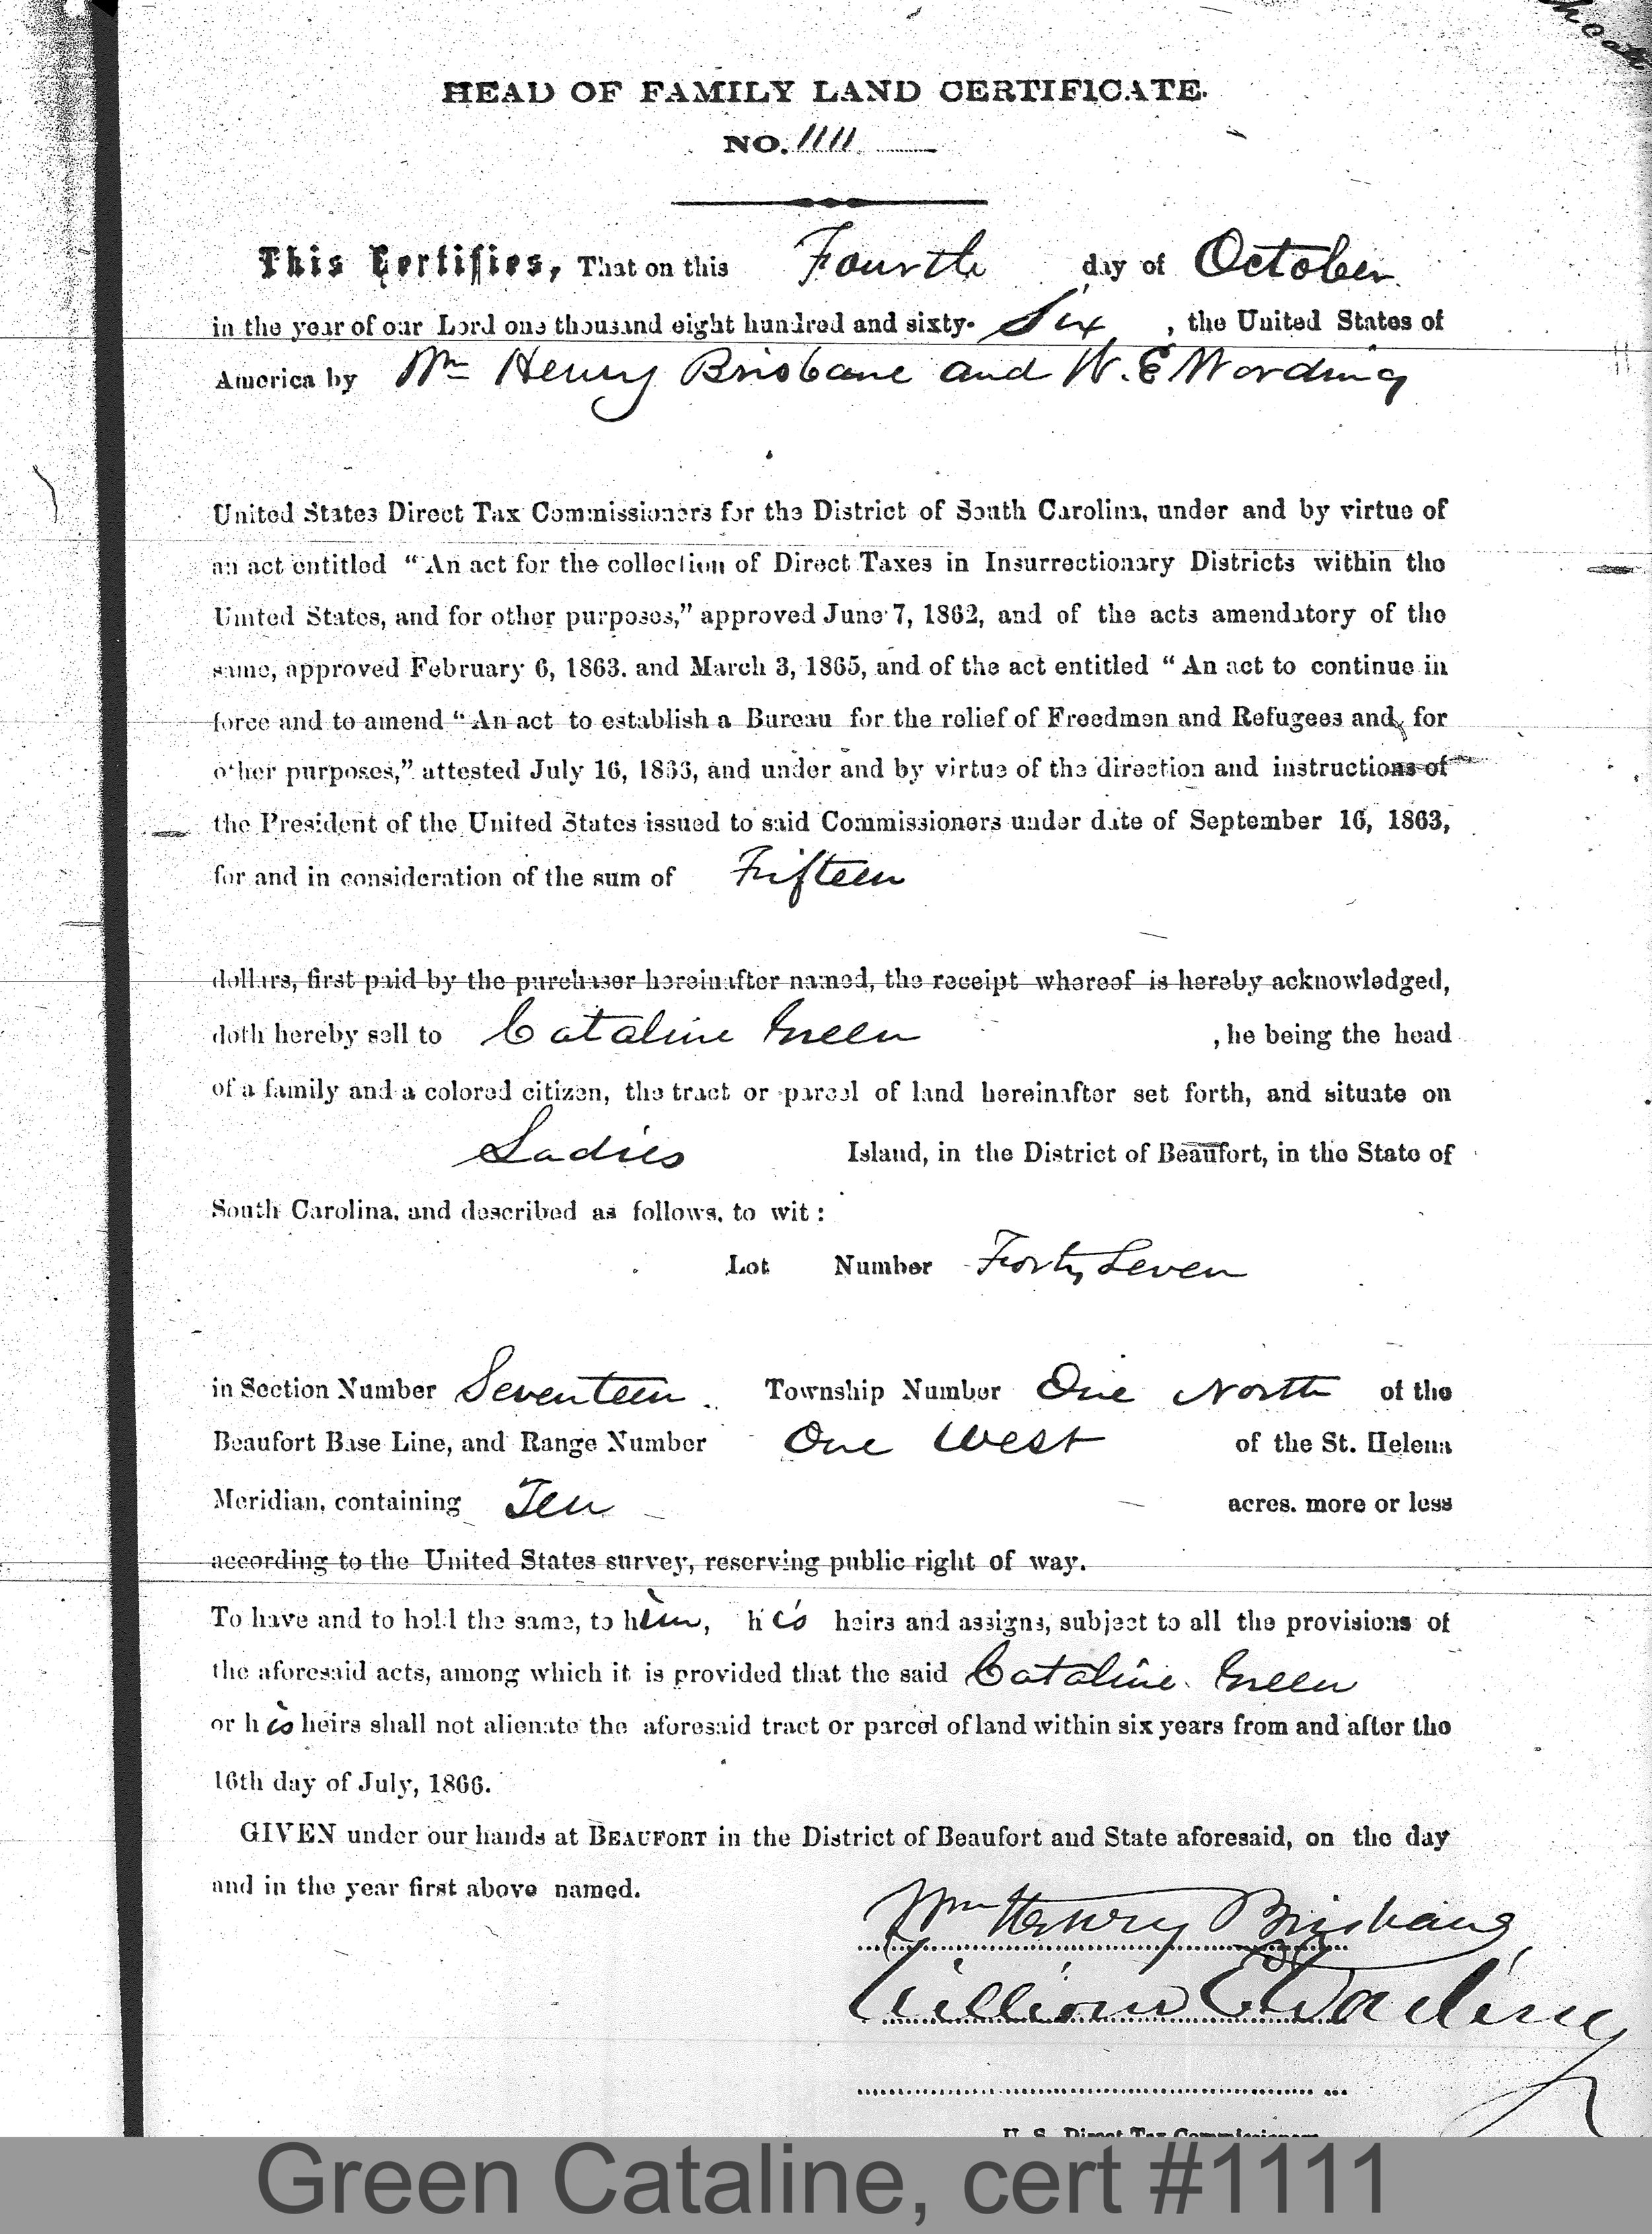 HEAD OF FAMILY LAND CERTIFICATE.
NO. 1111
This Certifies, That on this Fourth day of October
in the year of our Lord one thousand eight hundred and sixty- Six , the United States of
America by Wm Henry Brisbane and W. E Wording
United States Direct Tax Commissioners for the District of South Carolina, under and by virtue of
an act entitled “An act for the collection of Direct Taxes in Insurrectionary Districts within the
United States, and for other purposes,” approved June 7, 1862, and of the acts amendatory of the
same, approved February 6, 1863. and March 3, 1865, and of the act entitled “An act to continue in
force and to amend “An act to establish a Bureau for the relief of Freedmen and Refugees and, for
other purposes,” attested July 16, 1866, and under and by virtue of the direction and instructions of
the President of the United States issued to said Commissioners under date of September 16, 1863,
for and in consideration of the sum of Fifteen
dollars, first paid by the purchaser hereinafter named, the receipt whereof is hereby acknowledged,
doth hereby sell to Cataline Green , he being the head
of a family and a colored citizen, the tract or parcel of land hereinafter set forth, and situate on
Ladies Island, in the District of Beaufort, in the State of
South Carolina, and described as follows, to wit:
Lot Number Forty Seven
in Section Number Seventeen. Township Number One North of the
Beaufort Base Line, and Range Number One West of the St. Helena
Meridian, containing Ten acres. more or less
according to the United States survey, reserving public right of way.
To have and to hold the same, to him, his heirs and assigns, subject to all the provisions of
the aforesaid acts, among which it is provided that the said Cataline Green
or his heirs shall not alienate the aforesaid tract or parcel of land within six years from and after the
16th day of July, 1866.
GIVEN under our hands at BEAUFORT in the District of Beaufort and State aforesaid, on the day
and in the year first above named.
Wm Henry Brisbane
William E Wording
U. S. Direct Tax Commissioners
Green Cataline, cert #1111